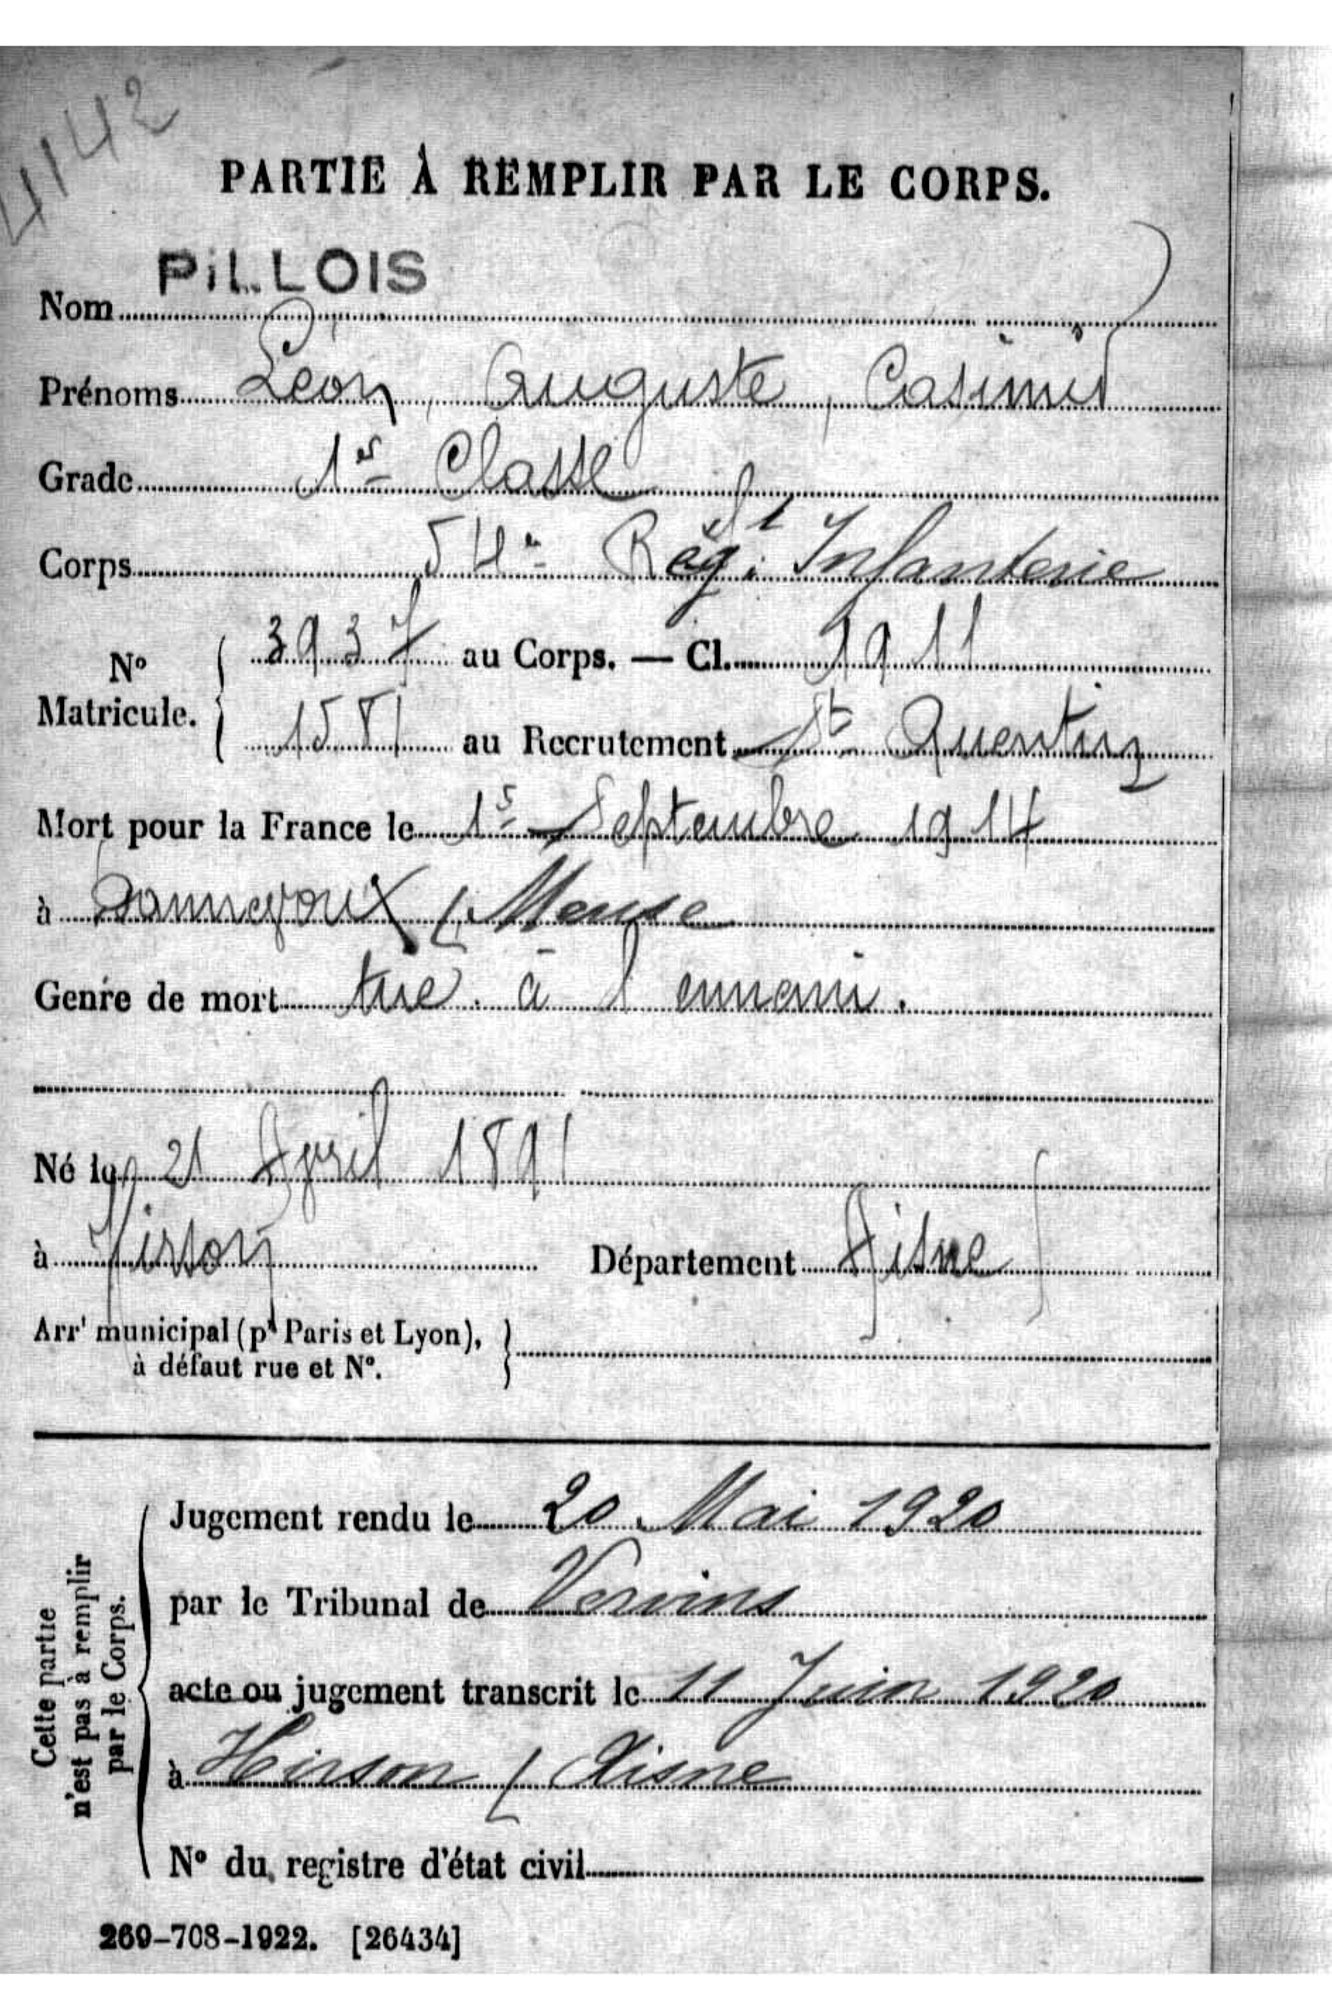 4142
PARTIE À REMPLIR PAR LE CORPS.
PiLLOIS
Nom
Prénoms Léon, Auguste, Casimir
Grade 1re Classe
Corps 54e Régt Infanterie
No Matricule. { 3937 au Corps. — Cl. 1911
1581 au Recrutement St Quentin
Mort pour la France le 1r Septembre 1914
à Dannevoux (Meuse
Genre de mort tué à l'ennemi.
Né le 21 Avril 1891
à Hirson Département Aisne
Arrt municipal (pt Paris et Lyon), à défaut rue et No. }
Cette partie n'est pas à remplir par le Corps.
Jugement rendu le 20 Mai 1920
par le Tribunal de Vervins
acte ou jugement transcrit le 11 Juin 1920
à Hirson (Aisne
No du registre d'état civil
269-708-1922. [26434]